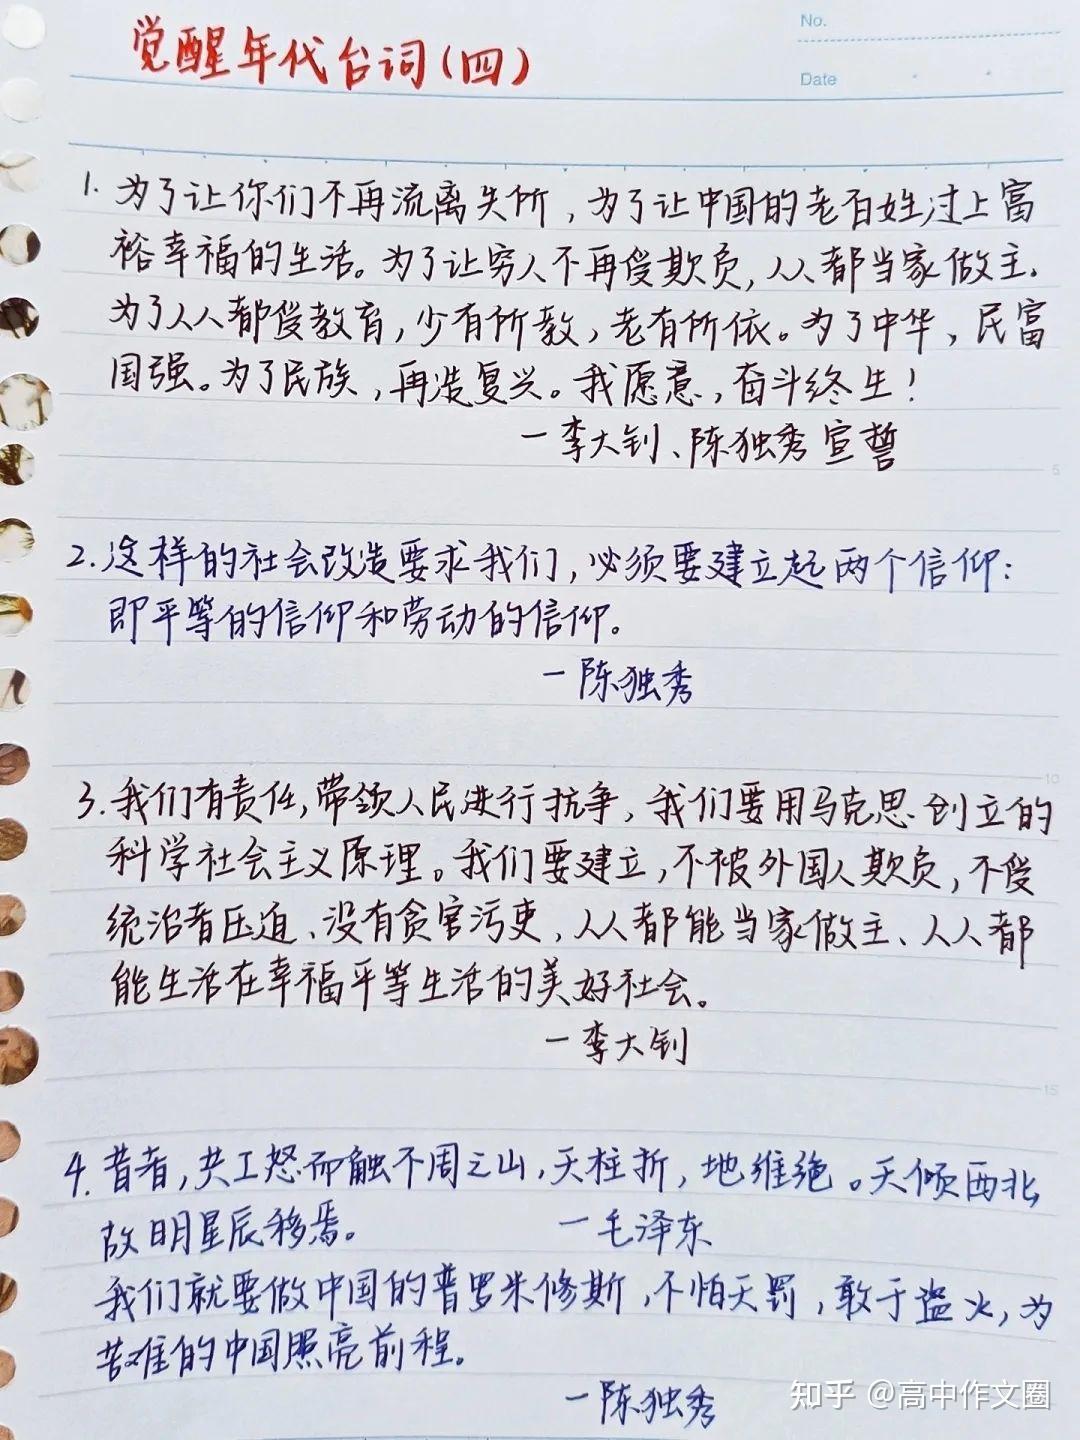 No.
觉醒年代台词(四)
Date
1. 为了让你们不再流离失所，为了让中国的老百姓过上富
裕幸福的生活。为了让穷人不再受欺负，人人都当家做主.
为了人人都受教育，少有所教，老有所依。为了中华，民富
国强。为了民族，再造复兴。我愿意，奋斗终生！
—李大钊、陈独秀宣誓
5
2. 这样的社会改造要求我们，必须要建立起两个信仰：
即平等的信仰和劳动的信仰。
—陈独秀
10
3. 我们有责任，带领人民进行抗争，我们要用马克思创立的
科学社会主义原理。我们要建立，不被外国人欺负，不受
统治者压迫、没有贪官污吏，人人都能当家做主、人人都
能生活在幸福平等生活的美好社会。
—李大钊
15
4. 昔者，共工怒而触不周之山，天柱折，地维绝。天倾西北
故日月星辰移焉。 —毛泽东
我们就要做中国的普罗米修斯，不怕天罚，敢于盗火，为
苦难的中国照亮前程。
—陈独秀
知乎 @高中作文圈